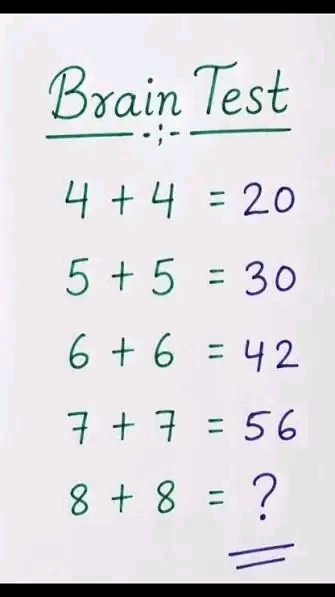 Brain Test
4 + 4 = 20
5 + 5 = 30
6 + 6 = 42
7 + 7 = 56
8 + 8 = ?